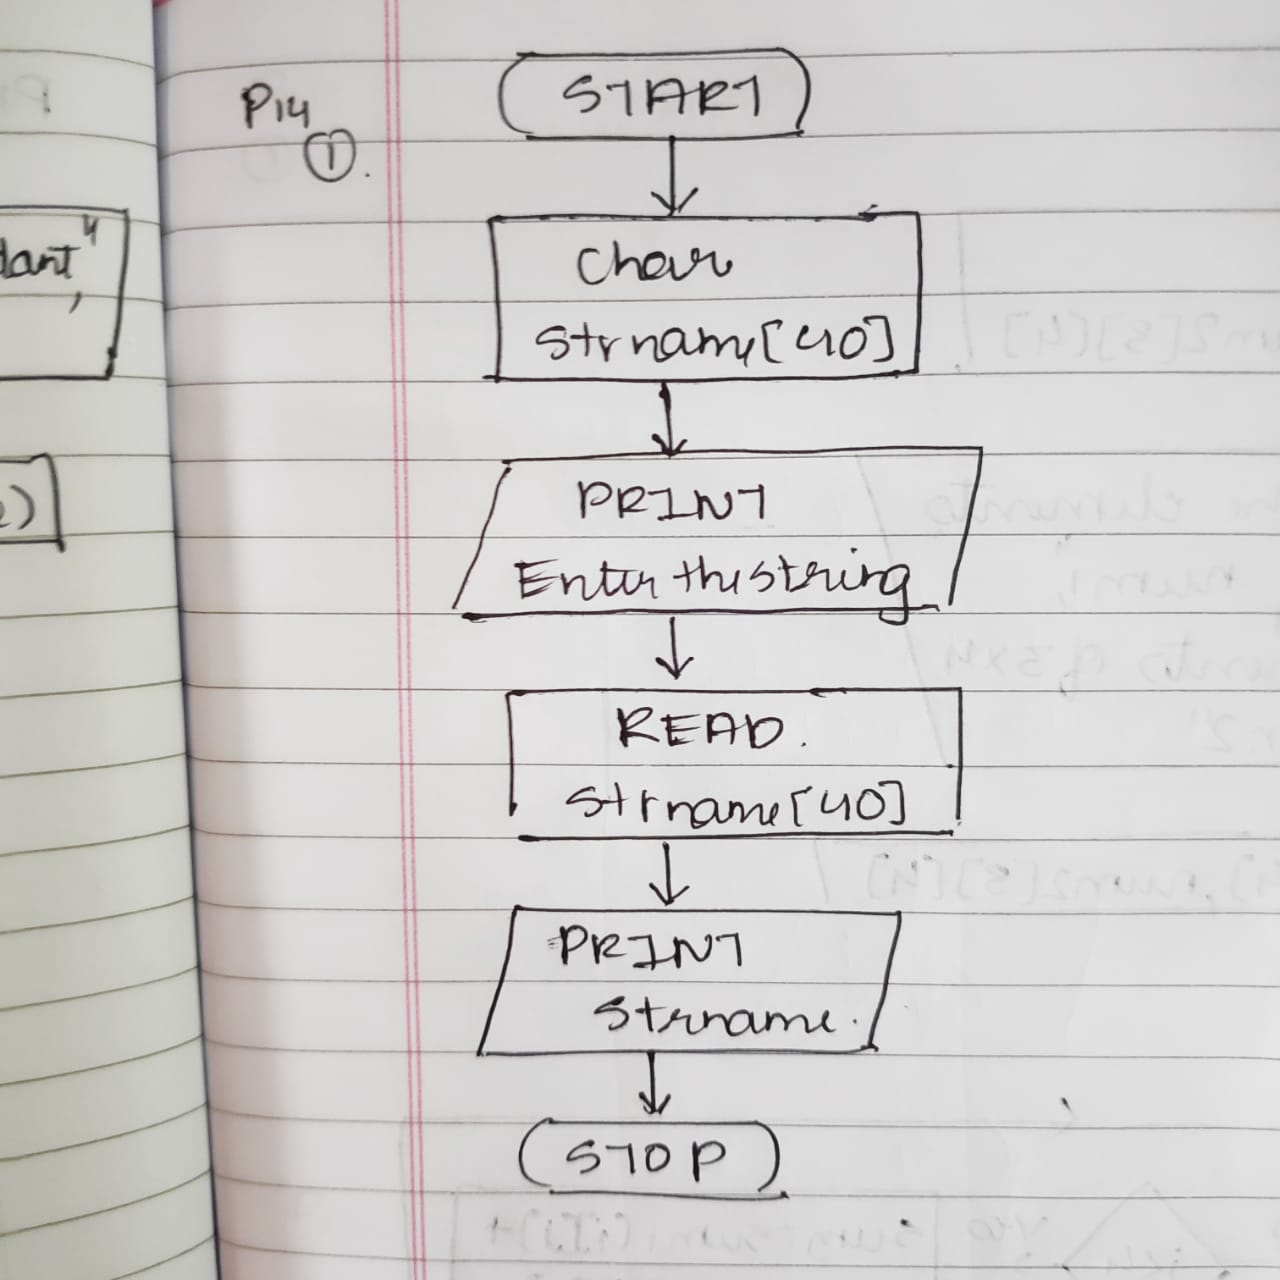 P14
①.
START
Char
Strname[40]
PRINT
Enter the string
READ.
Strname[40]
PRINT
Strname.
STOP
dant"
,